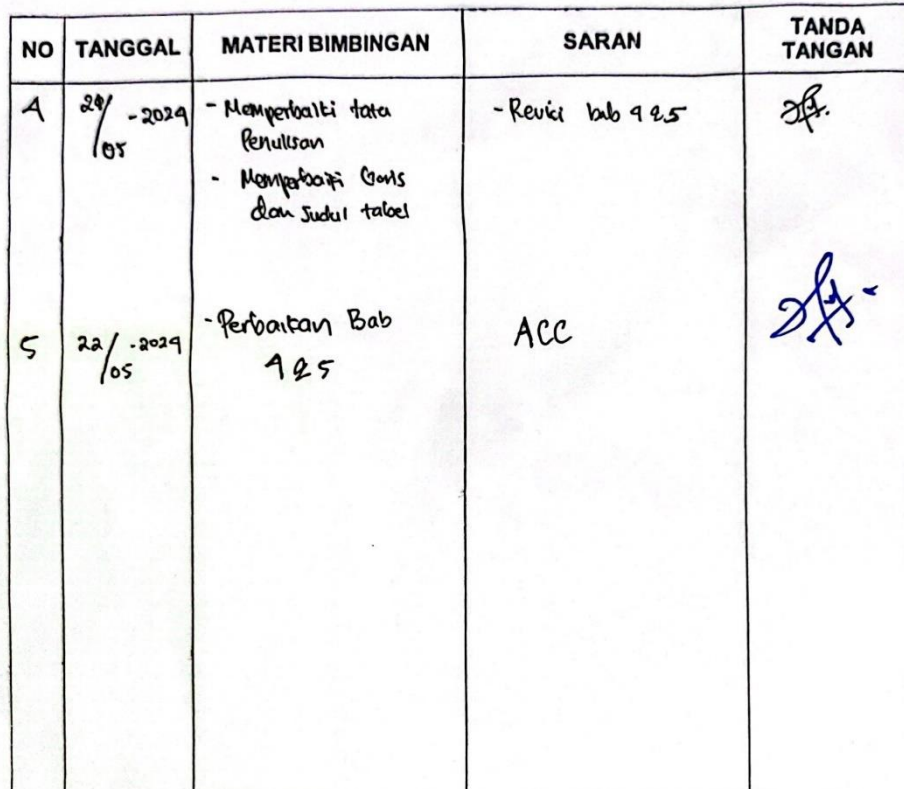 NO TANGGAL MATERI BIMBINGAN SARAN TANDA TANGAN
4 /05 -2024 - Memperbaiki tata Penulisan - Revisi bab 4 & 5
- Memperbaiki Garis dan Judul tabel
5 22/05 -2024 - Perbaikan Bab 4 & 5 ACC